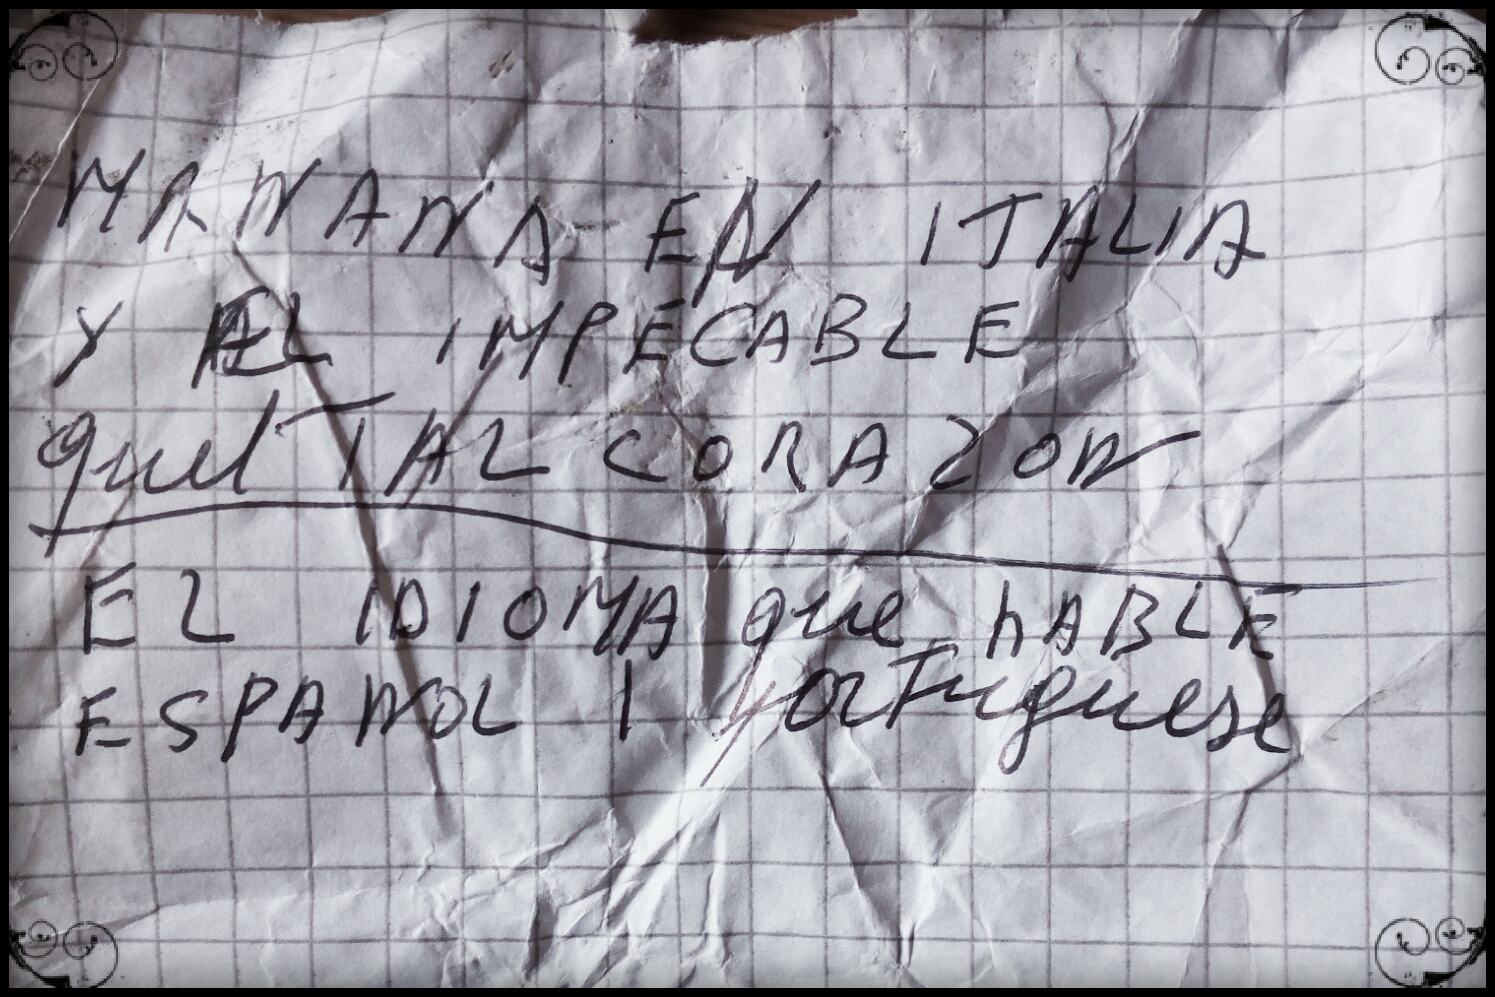 MANANA EN ITALIA
Y EL IMPECABLE
quel TAL CORAZON
EL IDIOMA que hABLE
ESPANOL I portuguese